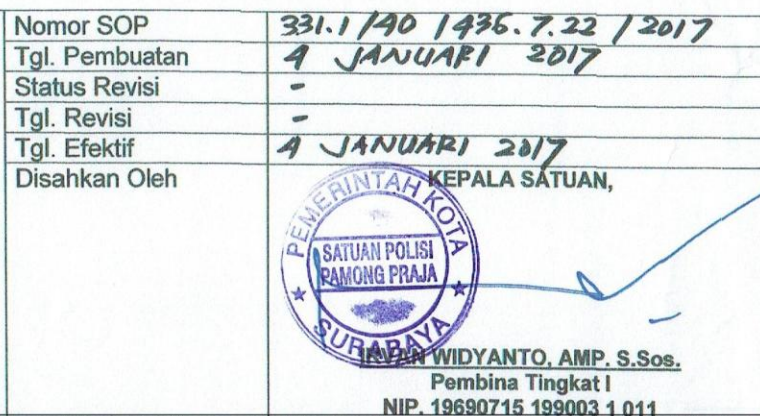 Nomor SOP 331.1/40/436.7.22/2017
Tgl. Pembuatan 4 JANUARI 2017
Status Revisi -
Tgl. Revisi -
Tgl. Efektif 4 JANUARI 2017
Disahkan Oleh KEPALA SATUAN,
PEMERINTAH KOTA
SATUAN POLISI
PAMONG PRAJA
SURABAYA
IRVAN WIDYANTO, AMP. S.Sos.
Pembina Tingkat I
NIP. 19690715 199003 1 011